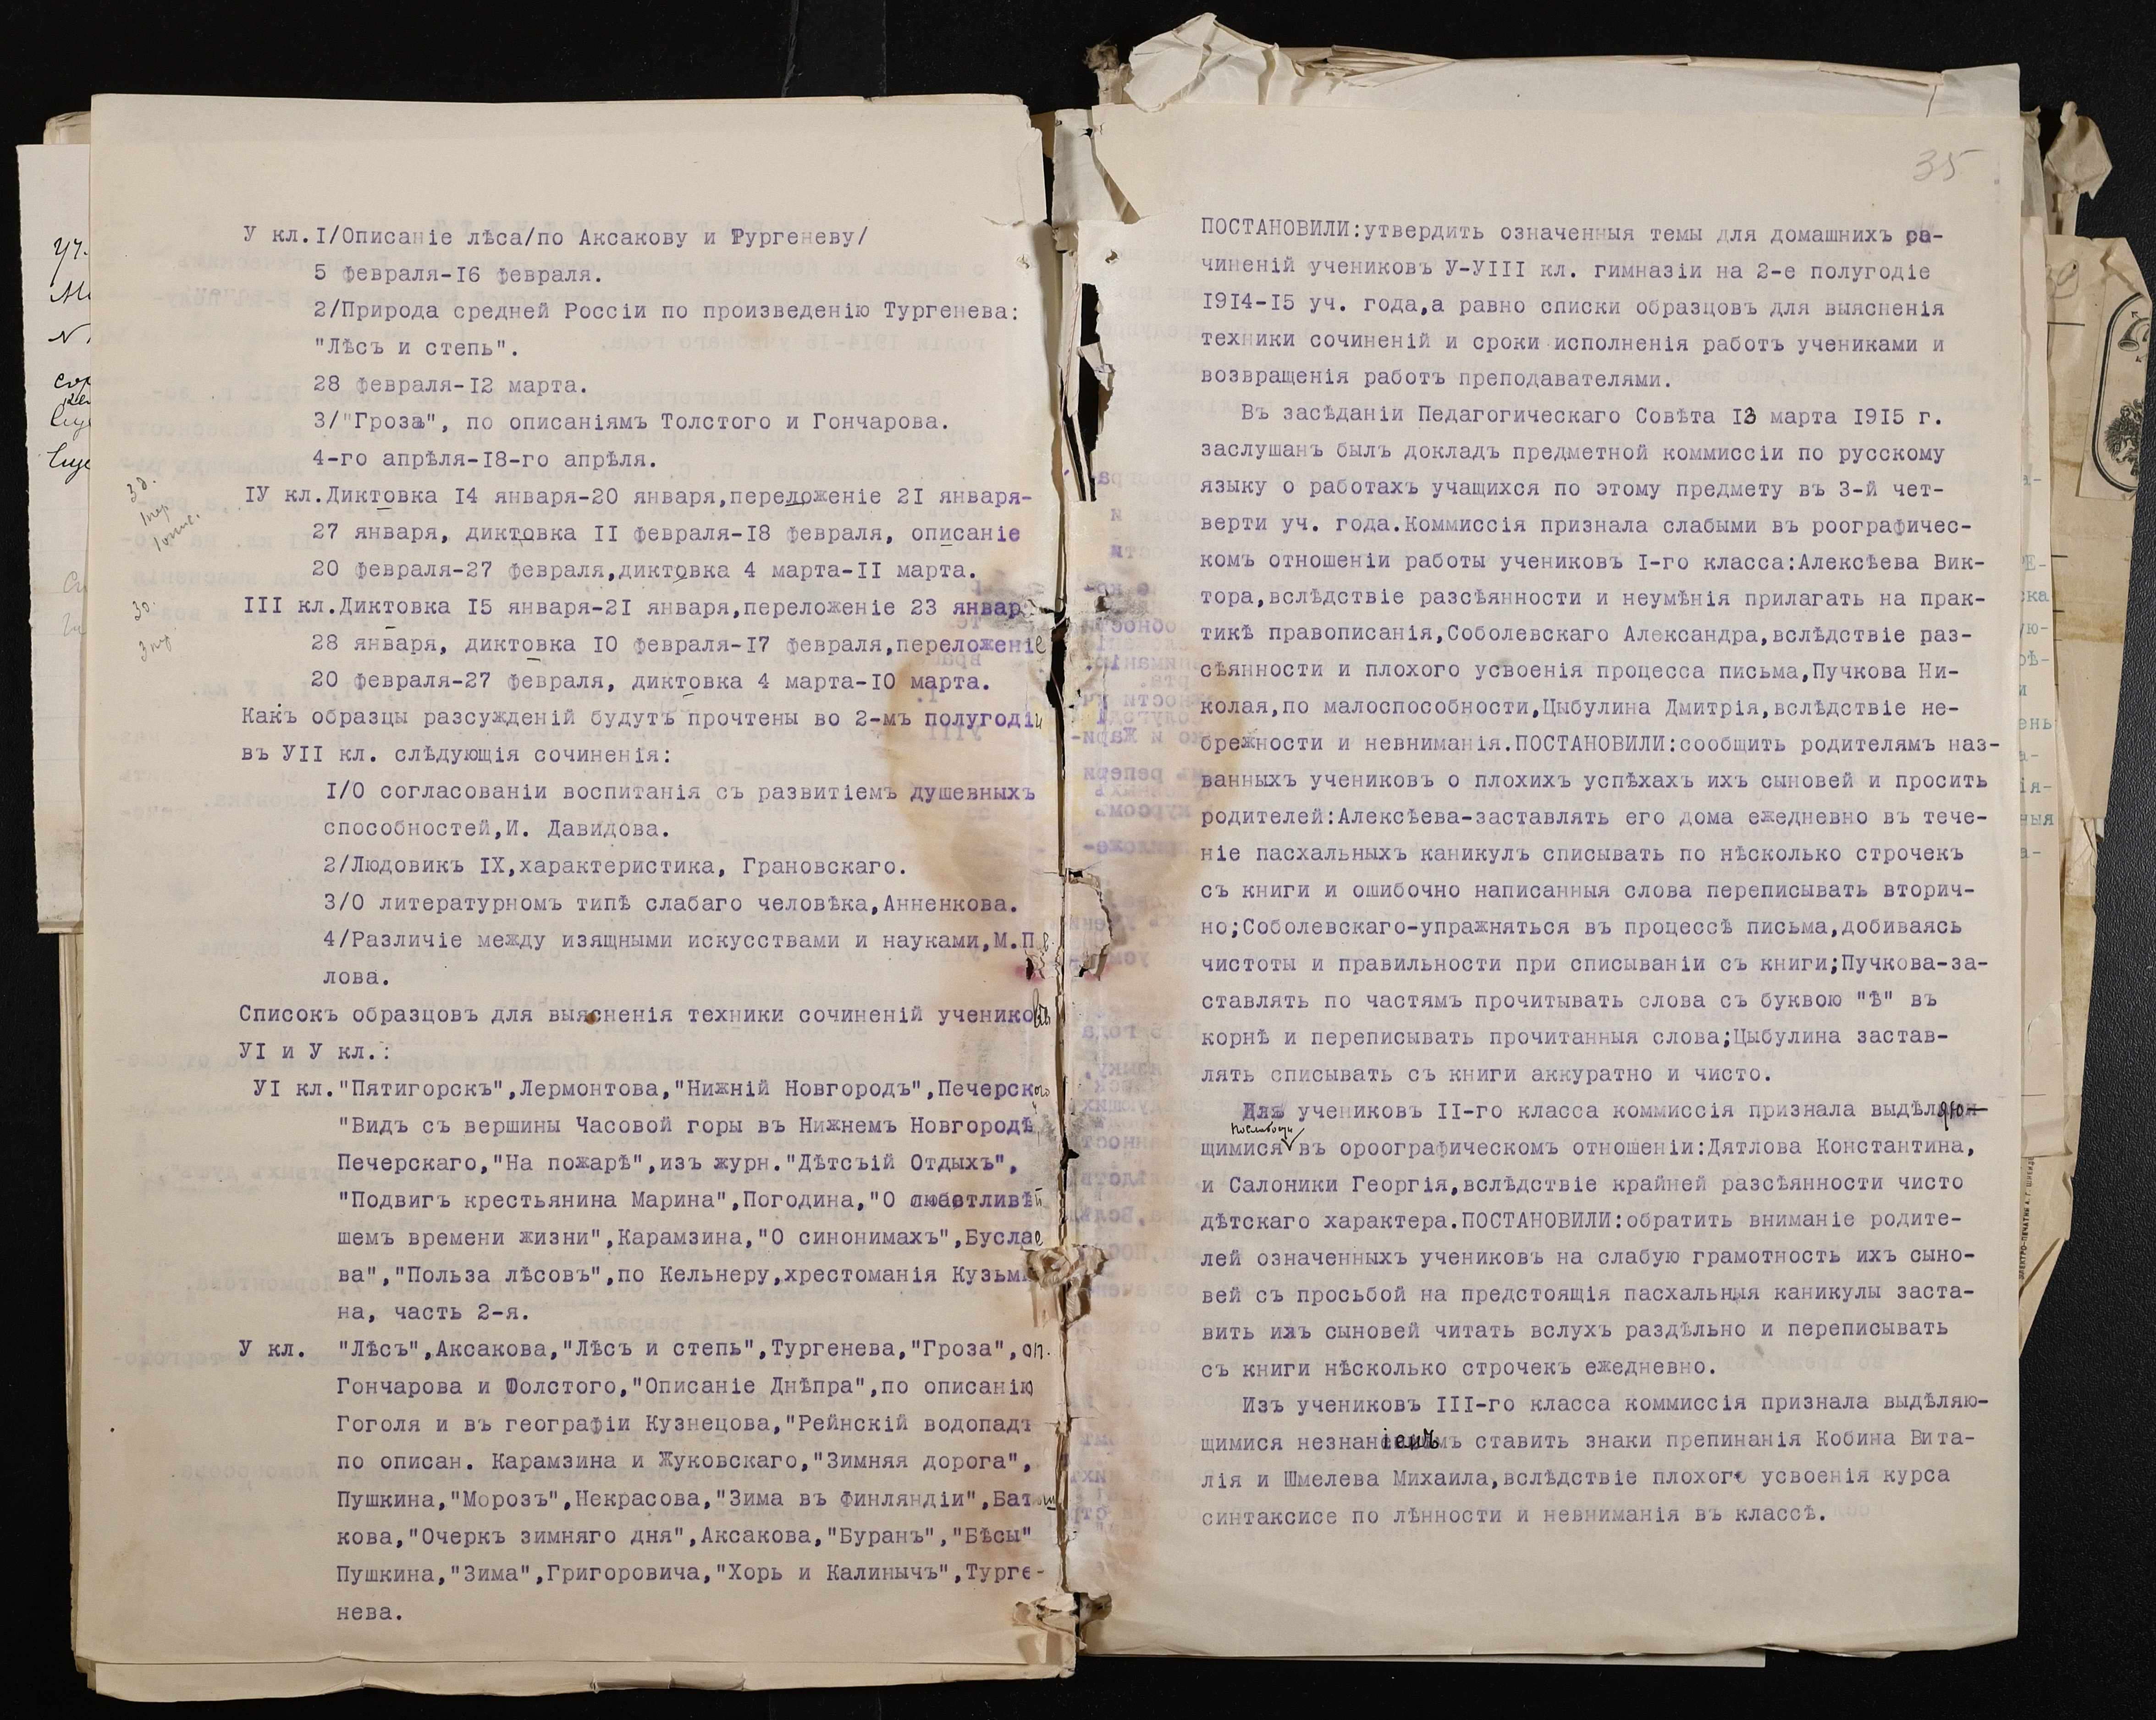 У кл.I/Описаніе лѣса/по Аксакову и Тургеневу/
5 февраля-I6 февраля.
2/Природа средней Россіи по произведенію Тургенева:
"Лѣсъ и степь".
28 февраля-I2 марта.
3/"Гроза", по описаніямъ Толстого и Гончарова.
4-го апрѣля-I8-го апрѣля.
IУ кл.Диктовка I4 января-20 января,переложеніе 2I января-
27 января, диктовка II февраля-I8 февраля, описаніе
20 февраля-27 февраля,диктовка 4 марта-II марта.
III кл.Диктовка I5 января-2I января,переложеніе 23 январ
28 января, диктовка I0 февраля-I7 февраля,переложеніе
20 февраля-27 февраля, диктовка 4 марта-I0 марта.
Какъ образцы разсужденій будутъ прочтены во 2-мъ полугодіи
въ УII кл. слѣдующія сочиненія:
I/О согласованіи воспитанія съ развитіемъ душевныхъ
способностей,И. Давидова.
2/Людовикъ IX,характеристика, Грановскаго.
3/О литературномъ типѣ слабаго человѣка,Анненкова.
4/Различіе между изящными искусствами и науками,М.П
лова.
Списокъ образцовъ для выясненія техники сочиненій учениковъ
УI и У кл.:
УI кл."Пятигорскъ",Лермонтова,"Нижній Новгородъ",Печерскаго
"Видъ съ вершины Часовой горы въ Нижнемъ Новгородѣ
Печерскаго,"На пожарѣ",изъ журн."Дѣтсъій Отдыхъ",
"Подвигъ крестьянина Марина",Погодина,"О счастливѣй
шемъ времени жизни",Карамзина,"О синонимахъ",Буслае
ва","Польза лѣсовъ",по Кельнеру,хрестоманія Кузьми
на, часть 2-я.
У кл. "Лѣсъ",Аксакова,"Лѣсъ и степь",Тургенева,"Гроза",оп.
Гончарова и Толстого,"Описаніе Днѣпра",по описанію
Гоголя и въ географіи Кузнецова,"Рейнскій водопадъ
по описан. Карамзина и Жуковскаго,"Зимняя дорога",
Пушкина,"Морозъ",Некрасова,"Зима въ Финляндіи",Батюш
кова,"Очеркъ зимняго дня",Аксакова,"Буранъ","Бѣсы"
Пушкина,"Зима",Григоровича,"Хорь и Калинычъ",Турге-
нева.
35
ПОСТАНОВИЛИ:утвердить означенныя темы для домашнихъ со-
чиненій учениковъ У-УIII кл. гимназіи на 2-е полугодіе
I9I4-I5 уч. года,а равно списки образцовъ для выясненія
техники сочиненій и сроки исполненія работъ учениками и
возвращенія работъ преподавателями.
Въ засѣданіи Педагогическаго Совѣта I3 марта I9I5 г.
заслушанъ былъ докладъ предметной коммиссіи по русскому
языку о работахъ учащихся по этому предмету въ 3-й чет-
верти уч. года.Коммиссія признала слабыми въ роографичес-
комъ отношеніи работы учениковъ I-го класса:Алексѣева Вик-
тора,вслѣдствіе разсѣянности и неумѣнія прилагать на прак-
тикѣ правописанія,Соболевскаго Александра,вслѣдствіе раз-
сѣянности и плохого усвоенія процесса письма,Пучкова Ни-
колая,по малоспособности,Цыбулина Дмитрія,вслѣдствіе не-
брежности и невниманія.ПОСТАНОВИЛИ:сообщить родителямъ наз-
ванныхъ учениковъ о плохихъ успѣхахъ ихъ сыновей и просить
родителей:Алексѣева-заставлять его дома ежедневно въ тече-
ніе пасхальныхъ каникулъ списывать по нѣсколько строчекъ
съ книги и ошибочно написанныя слова переписывать вторич-
но;Соболевскаго-упражняться въ процессѣ письма,добиваясь
чистоты и правильности при списываніи съ книги;Пучкова-за-
ставлять по частямъ прочитывать слова съ буквою "ѣ" въ
корнѣ и переписывать прочитанныя слова;Цыбулина застав-
лять списывать съ книги аккуратно и чисто.
Изъ учениковъ II-го класса коммиссія признала выдѣляю-
щимися въ ороографическомъ отношеніи:Дятлова Константина,
и Салоники Георгія,вслѣдствіе крайней разсѣянности чисто
дѣтскаго характера.ПОСТАНОВИЛИ:обратить вниманіе родите-
лей означенныхъ учениковъ на слабую грамотность ихъ сыно-
вей съ просьбой на предстоящія пасхальныя каникулы заста-
вить ихъ сыновей читать вслухъ раздѣльно и переписывать
съ книги нѣсколько строчекъ ежедневно.
Изъ учениковъ III-го класса коммиссія признала выдѣляю-
щимися незнаніемъ ставить знаки препинанія Кобина Вита-
лія и Шмелева Михаила,вслѣдствіе плохого усвоенія курса
синтаксисе по лѣнности и невниманія въ классѣ.